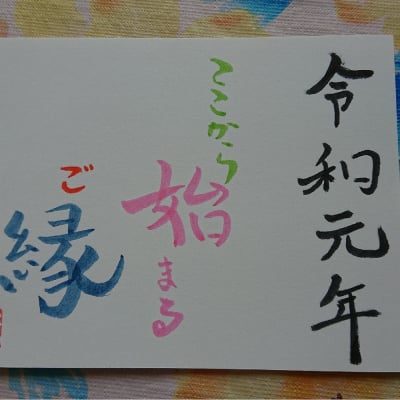 令和元年
ここから
始まる
ご縁